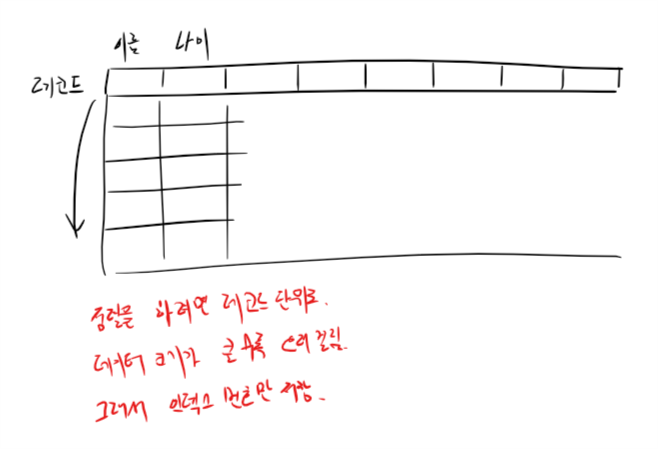 이름 나이
레코드
정렬을 하려면 레코드 단위로.
데이터 크기가 클수록 오래 걸림.
그래서 인덱스 번호만 저장.